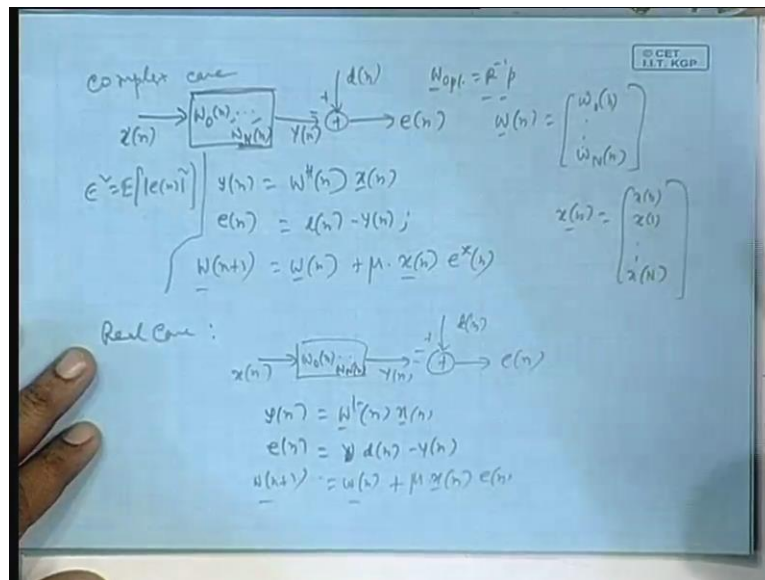 © CET
I.I.T. KGP
Complex case
x(n) → [W₀(n) ... W_N(n)] y(n) - + d(n) + → e(n)
W_opt. = R⁻¹p
W(n) = [w₀(n) ⋮ w_N(n)]
ε² = E[|e(n)|²]
y(n) = W^H(n) x(n)
e(n) = d(n) - y(n);
W(n+1) = W(n) + μ. x(n) e*(n)
x(n) = [x(n) x(1) ⋮ x(N)]
Real Case :
x(n) → [W₀(n) ... W_N(n)] y(n) - + d(n) + → e(n)
y(n) = W^t(n) x(n)
e(n) = d(n) - y(n)
W(n+1) = W(n) + μ x(n) e(n)